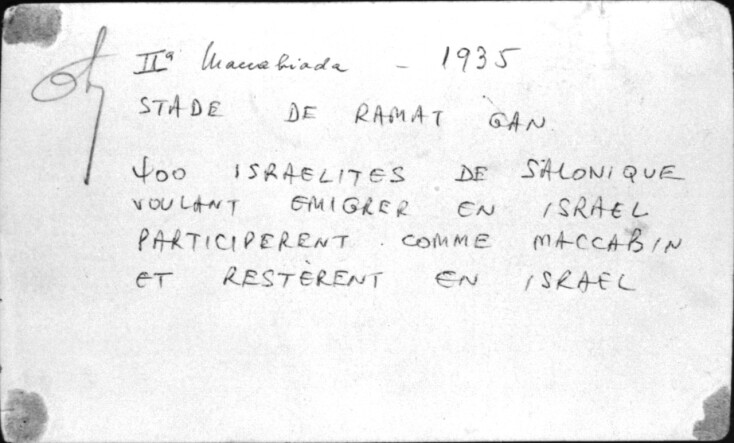 IIª Maccabiada - 1935
STADE DE RAMAT GAN
400 ISRAELITES DE SALONIQUE
VOULANT EMIGRER EN ISRAEL
PARTICIPERENT COMME MACCABIN
ET RESTÈRENT EN ISRAEL